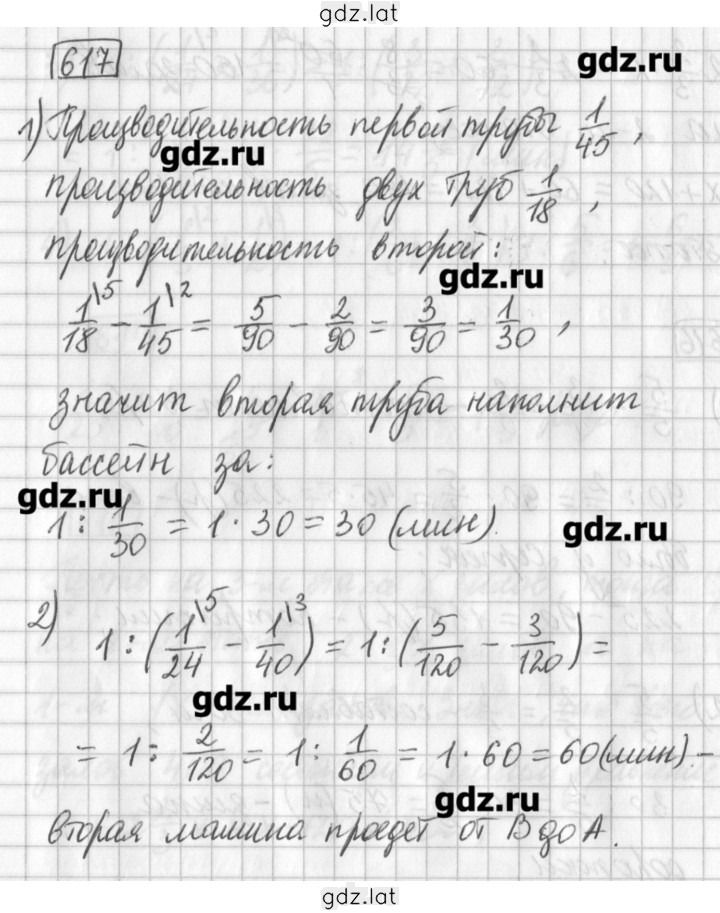 gdz.lat
617
gdz.ru
1) Производительность первой трубы 1/45,
gdz.ru
производительность двух труб 1/18,
производительность второй:
gdz.ru
1/18 \5 - 1/45 \2 = 5/90 - 2/90 = 3/90 = 1/30,
значит вторая труба наполнит
бассейн за:
gdz.ru
1 : 1/30 = 1 · 30 = 30 (мин).
gdz.ru
2) 1 : (1/24 \5 - 1/40 \3) = 1 : (5/120 - 3/120) =
gdz.ru
= 1 : 2/120 = 1 : 1/60 = 1 · 60 = 60 (мин). -
gdz.ru
вторая машина проедет от В до А.
gdz.lat